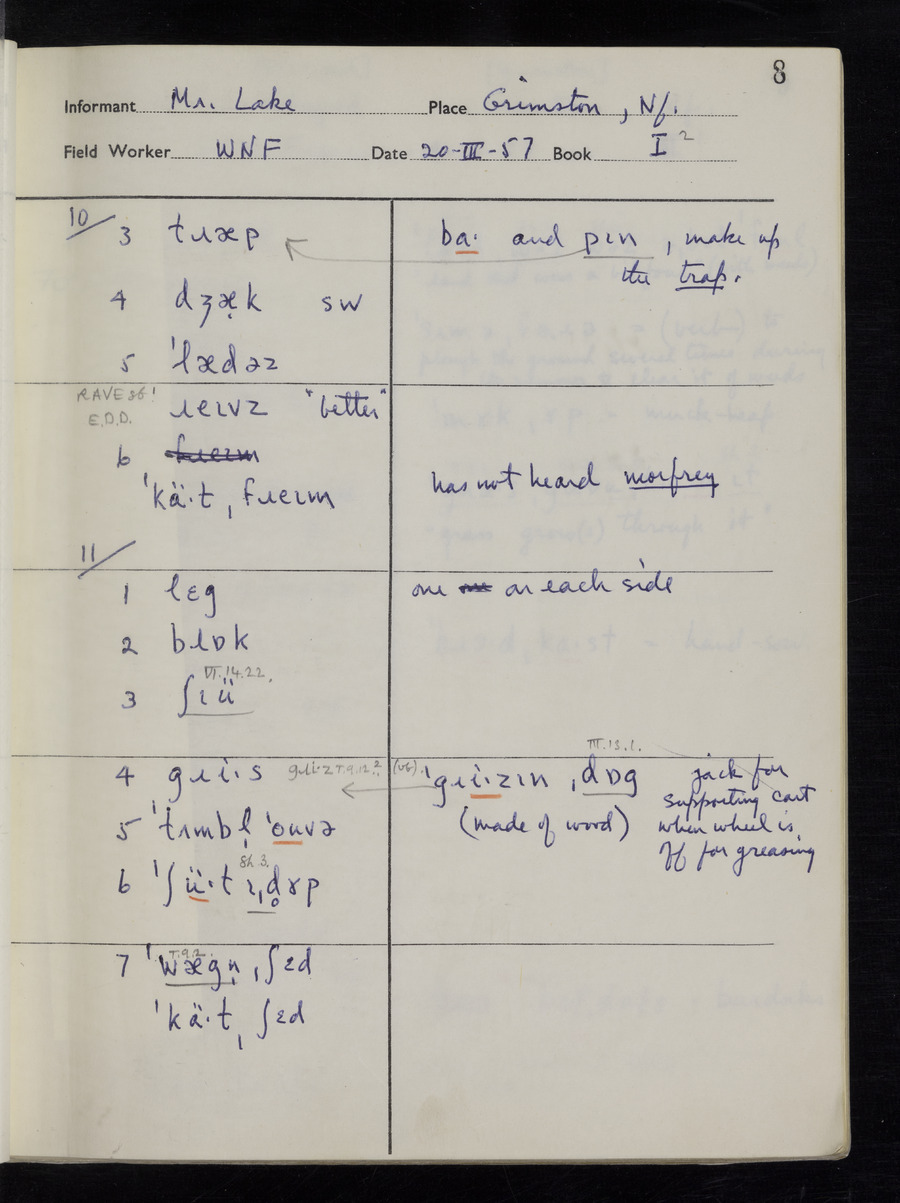 8
Informant Mr. Lake Place Grimston, Nf.
Field Worker WNF Date 20-III-57 Book I 2
10/
3 tɹæp ba· and pɪn, make up
the trap.
4 dʒæ̣k sw
5 ˈlædəz
RAVE sb!
E.D.D.
ɹeɪvz "better"
6 fɹeɪm
ˈkä·tˌfɹeɪm has not heard morfrey
11/
1 lɛg one on each side
2 blɒk
VI.14.22.
3 ʃɪü
III.13.1.
4 gɹi·s (vb). ˈgɹi·zɪnˌdɒg jack for
supporting cart
5 ˈtʌmbl̩ ˈouvə (made of wood) when wheel is
off for greasing
sh.3.
6 ˈʃü·tɪˌd̥ɤp
T.9.2.
7 ˈwægn̩ˌʃɛd
ˈkä·tˌʃɛd